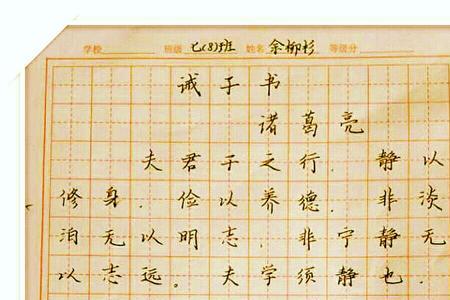 学校 班级 七(8)班 姓名 余柳杉 等级分
诫子书
诸葛亮
夫君子之行.静以
修身.俭以养德.非淡
泊无以明志.非宁静无
以志远。夫学须静也.